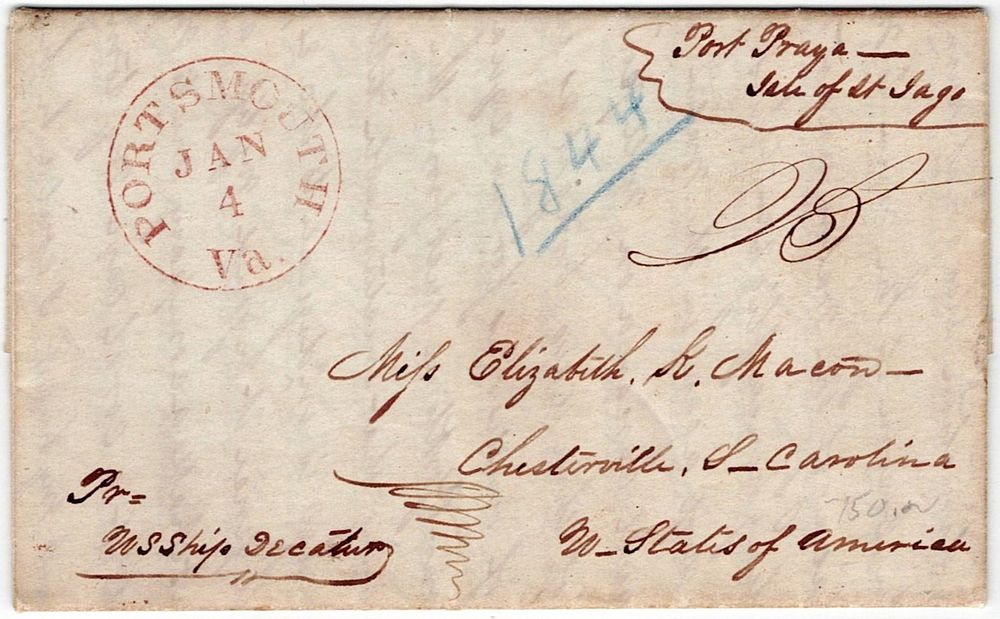 Port Praya —
Isle of St Jago
PORTSMOUTH
JAN
4
Va.
1844
Miss Elizabeth. K. Macon —
Chesterville, S_ Carolina
U_ States of America
Pr=
US Ship Decatur